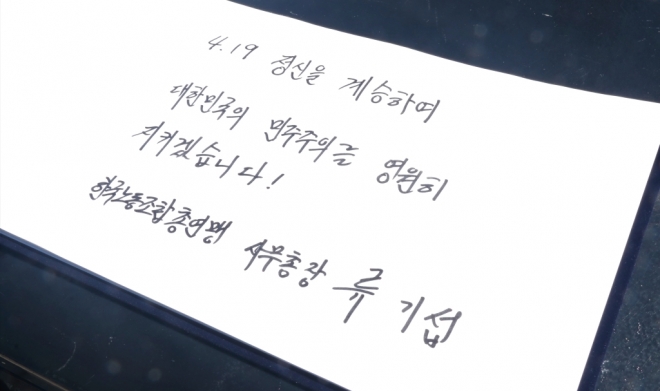 4.19 정신을 계승하여
대한민국의 민주주의를 영원히
지키겠습니다!
한국노동조합총연맹 사무총장 류기섭